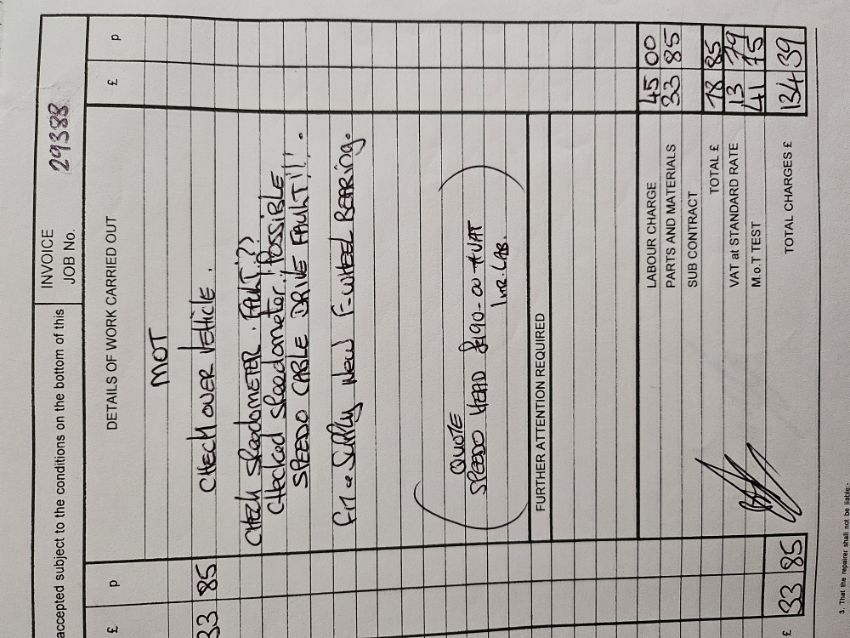 accepted subject to the conditions on the bottom of this
INVOICE
JOB No. 29388
£ p DETAILS OF WORK CARRIED OUT £ p
MOT
33 85 CHECK OVER VEHICLE.
CHECK SPEEDOMETER. FAULT???
CHECKED SPEEDOMETER!! POSSIBLE
SPEEDO CABLE DRIVE FAULT!!!.
FIT & SUPPLY NEW F-WHEEL BEARING.
QUOTE
SPEEDO HEAD £190-00 + VAT
INC. LAB.
FURTHER ATTENTION REQUIRED
LABOUR CHARGE 45 00
PARTS AND MATERIALS 33 85
SUB CONTRACT
TOTAL £ 78 85
VAT at STANDARD RATE 13 79
M.o.T TEST 41 75
£ 33 85 TOTAL CHARGES £ 134 39
3. That the repairer shall not be liable:-